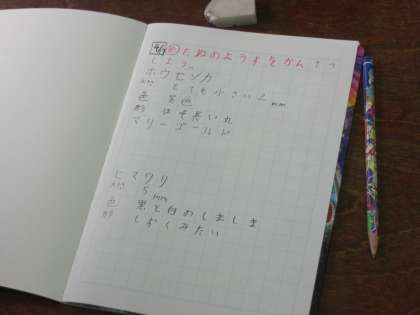 たねのようすをかんさつ
しよう。
ホウセンカ
とても小さい 2mm
色 茶色
形
マリーゴールド
ヒマワリ
5mm
色 黒と白のしましま
形 しずくみたい